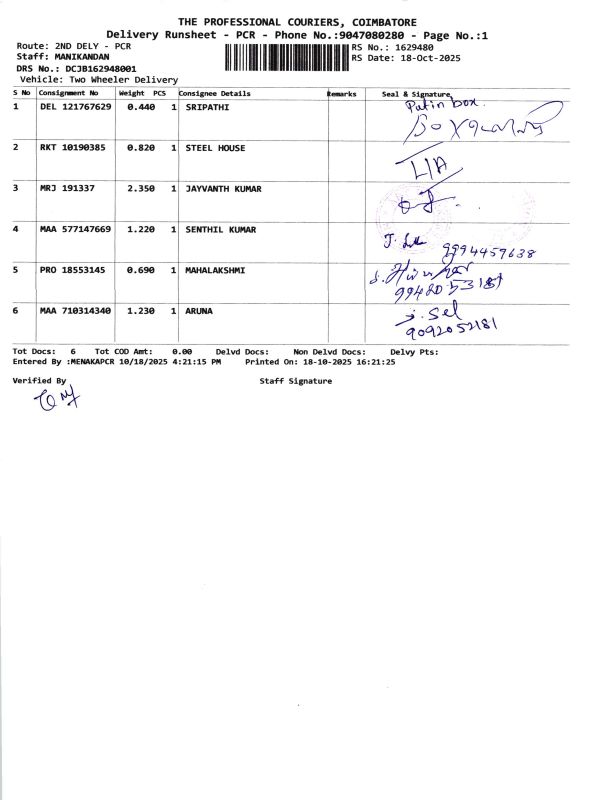 THE PROFESSIONAL COURIERS, COIMBATORE
Delivery Runsheet - PCR - Phone No.:9047080280 - Page No.:1
Route: 2ND DELY - PCR
RS No.: 1629480
Staff: MANIKANDAN
RS Date: 18-Oct-2025
DRS No.: DCJB162948001
Vehicle: Two Wheeler Delivery
S No Consignment No Weight PCS Consignee Details Remarks Seal & Signature
1 DEL 121767629 0.440 1 SRIPATHI
box.
2 RKT 10190385 0.820 1 STEEL HOUSE
3 MRJ 191337 2.350 1 JAYVANTH KUMAR
4 MAA 577147669 1.220 1 SENTHIL KUMAR
9994459638
5 PRO 18553145 0.690 1 MAHALAKSHMI
6 MAA 710314340 1.230 1 ARUNA
9092052181
Tot Docs: 6 Tot COD Amt: 0.00 Delvd Docs: Non Delvd Docs: Delvy Pts:
Entered By :MENAKAPCR 10/18/2025 4:21:15 PM Printed On: 18-10-2025 16:21:25
Verified By Staff Signature